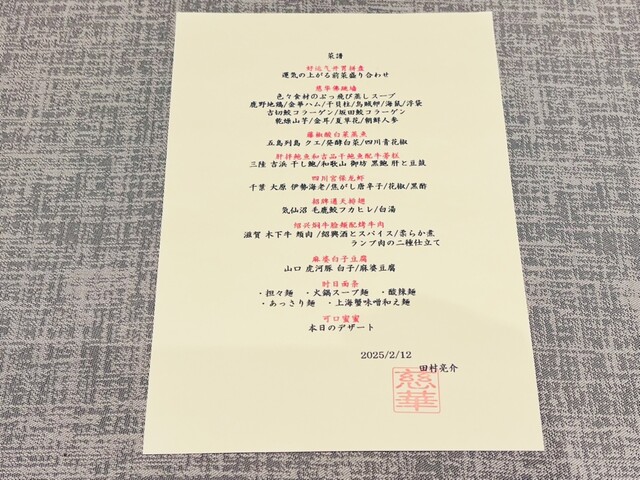 菜譜
好运气开胃拼盘
運気の上がる前菜盛り合わせ
慈华佛跳墙
色々食材のぶっ飛び蒸しスープ
鹿野地鶏/金華ハム/干貝柱/烏賊卵/海鼠/浮袋
吉切鮫コラーゲン/坂田鮫コラーゲン
乾燥山芋/金耳/夏草花/朝鮮人参
藤椒酸白菜蒸鱼
五島列島 クエ/発酵白菜/四川青花椒
肝拌鲍鱼和吉品干鲍鱼配牛蒡糕
三陸 吉浜 干し鮑/和歌山 御坊 黒鮑 肝と豆鼓
四川宫保龙虾
千葉 大原 伊勢海老/焦がし唐辛子/花椒/黒酢
招牌通天排翅
気仙沼 毛鹿鮫フカヒレ/白湯
绍兴焖牛脸颊配烤牛肉
滋賀 木下牛 頬肉 /紹興酒とスパイス/柔らか煮
ランプ肉の二種仕立て
麻婆白子豆腐
山口 虎河豚 白子/麻婆豆腐
时日面条
・担々麺 ・火鍋スープ麺 ・酸辣麺
・あっさり麺 ・上海蟹味噌和え麺
可口蜜蜜
本日のデザート
2025/2/12
田村亮介
慈華